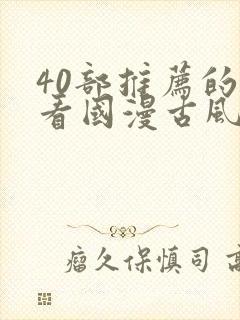 40部推薦的
看國漫古風
瘤久保慎司 高